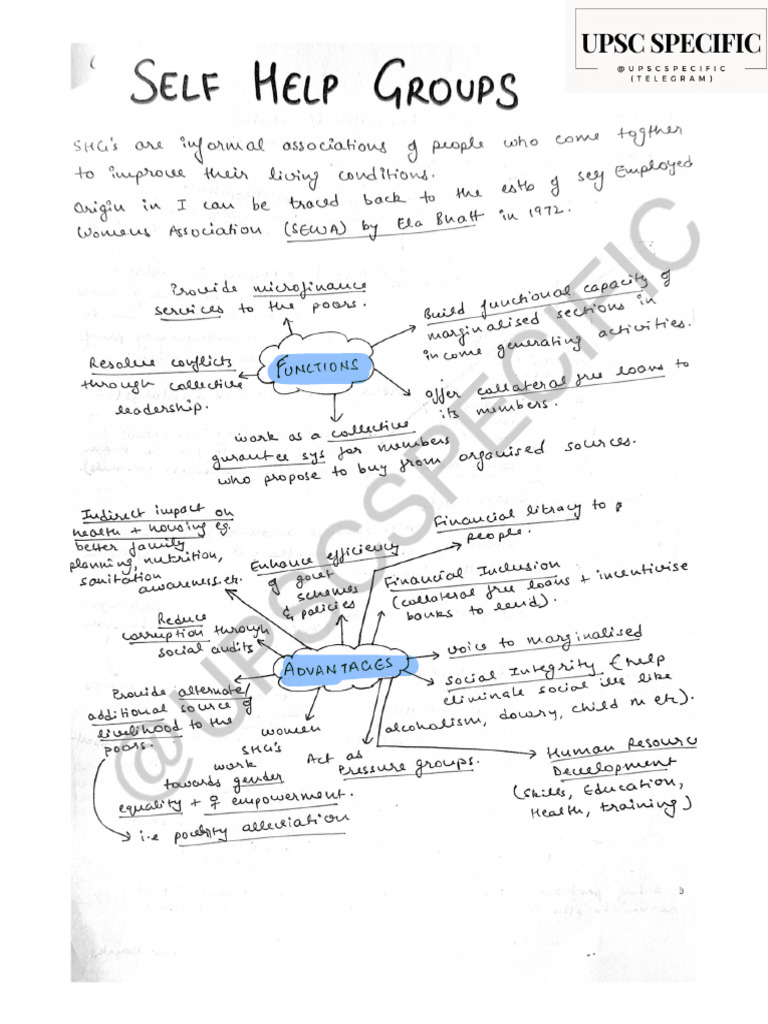 UPSC SPECIFIC
@UPSCSPECIFIC
(TELEGRAM)
SELF HELP GROUPS
SHG's are informal associations of people who come togther
to improve their living conditions.
Origin in I can be traced back to the estb of Self Employed
Womens Association (SEWA) by Ela Bhatt in 1972.
Provide microfinance
services to the poors.
Build functional capacity of
marginalised sections in
income generating activities.
FUNCTIONS
Resolve conflicts
through collective
leadership.
offer collateral free loans to
its members.
work as a collective
gurantee sys for members
who propose to buy from organised sources.
Indirect impact on
health + housing eg.
better family
planning, nutrition,
sanitation
awareness etc.
Enhance efficiency
of govt
schemes
& policies
Financial litracy to
people.
Financial Inclusion
(collateral free loans + incentivise
banks to lend).
Reduce
corruption through
social audits
ADVANTAGES
voice to marginalised
social Integrity (help
eliminate social ills like
alcoholism, dowry, child m etc).
Provide alternate/
additional source of
livelihood to the
poors.
women
SHG's
work
towards gender
equality + ♀ empowerment.
Act as
Pressure groups.
Human Resourc
Development
(skills, Education,
Health, training)
i.e poverty alleviation
@UPSCSPECIFIC